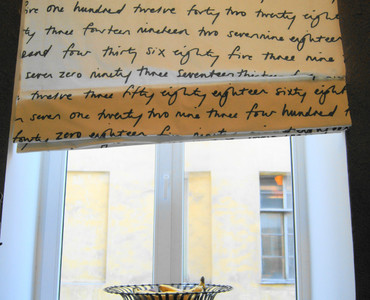 five one hundred twelve forty two twenty eight
ty three fourteen nineteen two seven nine eighteen
sand four thirty six eighty five three nine
seven zero ninety three seventeen thirty
twelve three fifty eighty eighteen sixty eight
n seven one twenty two nine three four hundred
forty zero eighteen